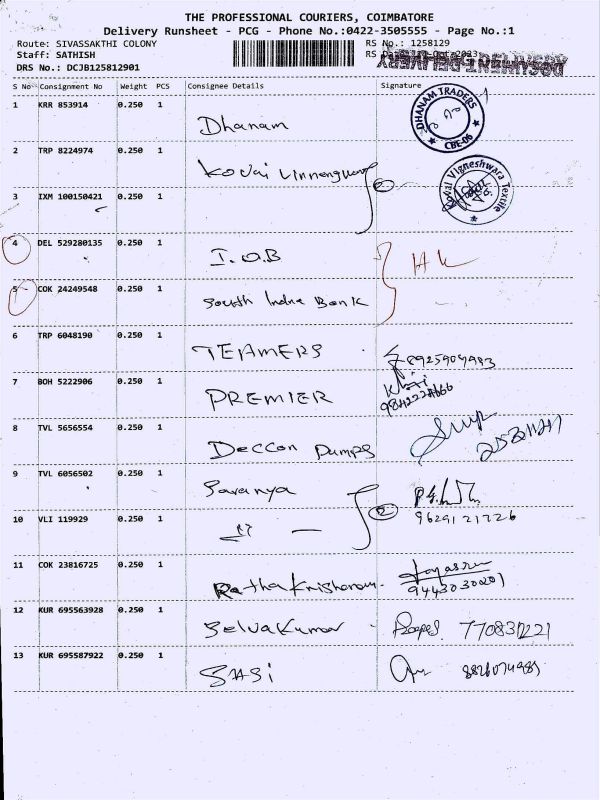 THE PROFESSIONAL COURIERS, COIMBATORE
Delivery Runsheet - PCG - Phone No.:0422-3505555 - Page No.:1
Route: SIVASSAKTHI COLONY RS No.: 1258129
Staff: SATHISH RS 2023
DRS No.: DCJB125812901
S No Consignment No Weight PCS Consignee Details Signature
1 KRR 853914 0.250 1
Dhanam DHANAM TRADERS CBE-06
2 TRP 8224974 0.250 1
Kovai Kovai Vigneshwara Textile
3 IXM 100150421 0.250 1
4 DEL 529280135 0.250 1
I.O.B
5 COK 24249548 0.250 1
South India Bank
6 TRP 6048190 0.250 1
TEAMERS 8925909983
7 BOH 5222906 0.250 1
PREMIER
8 TVL 5656554 0.250 1
Deccan Pumps
9 TVL 6056502 0.250 1
Saranya
10 VLI 119929 0.250 1
9629121726
11 COK 23816725 0.250 1
Jayasree
9443030201
12 KUR 695563928 0.250 1
Selvakumar
13 KUR 695587922 0.250 1
SASI